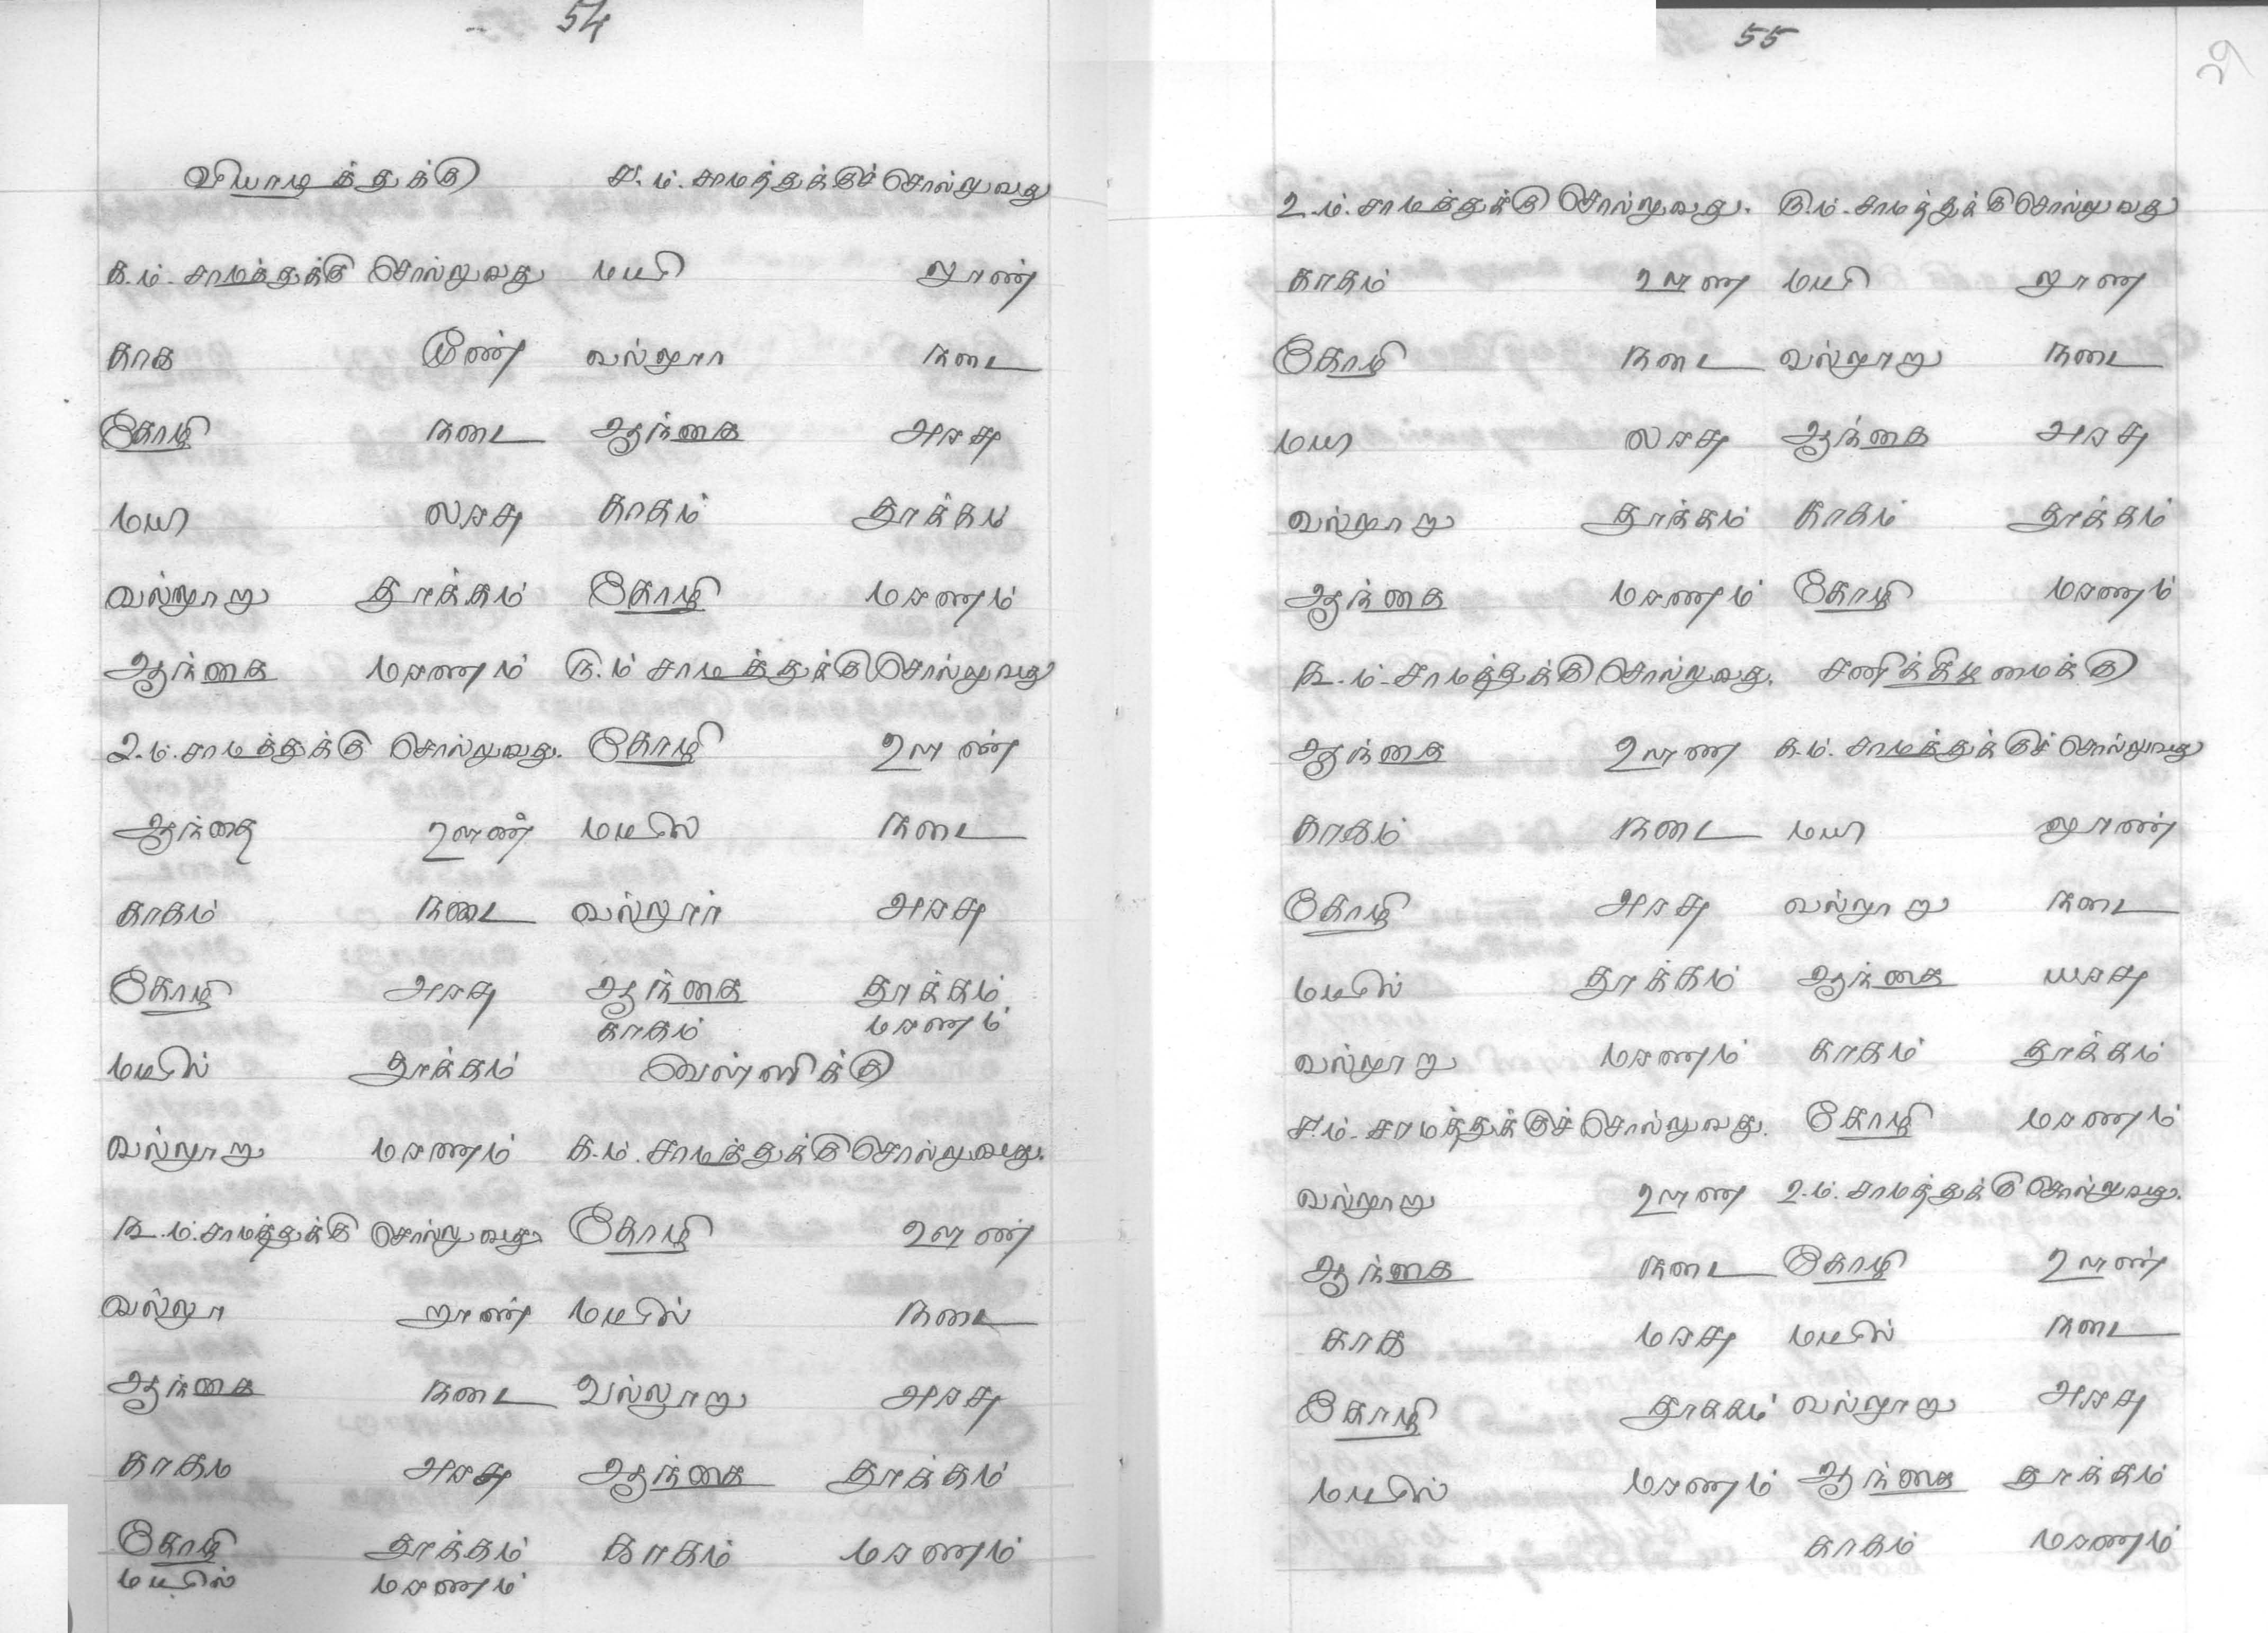 54
வியாழத்துக்கு
க.ம். சாமத்துக்கு சொல்லுவது
காக மூண்
கோழி நடை
மயி லரசு
வல்லூறு தூக்கம்
ஆந்தை மரணம்
உ.ம். சாமத்துக்கு சொல்லுவது.
ஆந்தை ஊண்
காகம் நடை
கோழி அரசு
மயில் தூக்கம்
வல்லூறு மரணம்
௩.ம். சாமத்துக்கு சொல்லுவது
வல்லூ றூண்
ஆந்தை நடை
காகம அரசு
கோழி தூக்கம்
மயில் மரணம்
ச.ம். சாமத்துக்குச் சொல்லுவது
மயி லூண்
வல்லூா நடை
ஆந்தை அரசு
காகம் தூக்கம்
கோழி மரணம்
௫.ம் சாமத்துக்கு சொல்லுவது
கோழி ஊண்
மயில் நடை
வல்லூர் அரசு
ஆந்தை தூக்கம்
காகம் மரணம்
வெள்ளிக்கு
க.ம். சாமத்துக்கு சொல்லுவது.
கோழி ஊண்
மயில் நடை
வல்லூறு அரசு
ஆந்தை தூக்கம்
காகம் மரணம்
55
உ.ம். சாமத்துக்கு சொல்லுவது.
காகம் ஊண
கோழி நடை
மயி லரசு
வல்லூறு தூக்கம்
ஆந்தை மரணம்
௩.ம். சாமத்துக்கு சொல்லுவது.
ஆந்தை ஊண
காகம் நடை
கோழி அரசு
மயில் தூக்கம்
வல்லூறு மரணம்
ச.ம். சாமத்துக்குச் சொல்லுவது.
வல்லூறு ஊண
ஆந்தை நடை
காக மரசு
கோழி தூககம்
மயில் மரணம்
௫.ம். சாமத்துக்கு சொல்லுவது
மயி லூண
வல்லூறு நடை
ஆந்தை அரசு
காகம் தூக்கம்
கோழி மரணம்
சனிக்கிழமைக்கு
க.ம். சாமத்துக்குச் சொல்லுவது
மயி லூண்
வல்லூறு நடை
ஆந்தை யரசு
காகம் தூக்கம்
கோழி மரணம்
உ.ம். சாமத்துக்கு சொல்லுவது.
கோழி ஊண்
மயில் நடை
வல்லூறு அரசு
ஆந்தை தூக்கம்
காகம் மரணம்